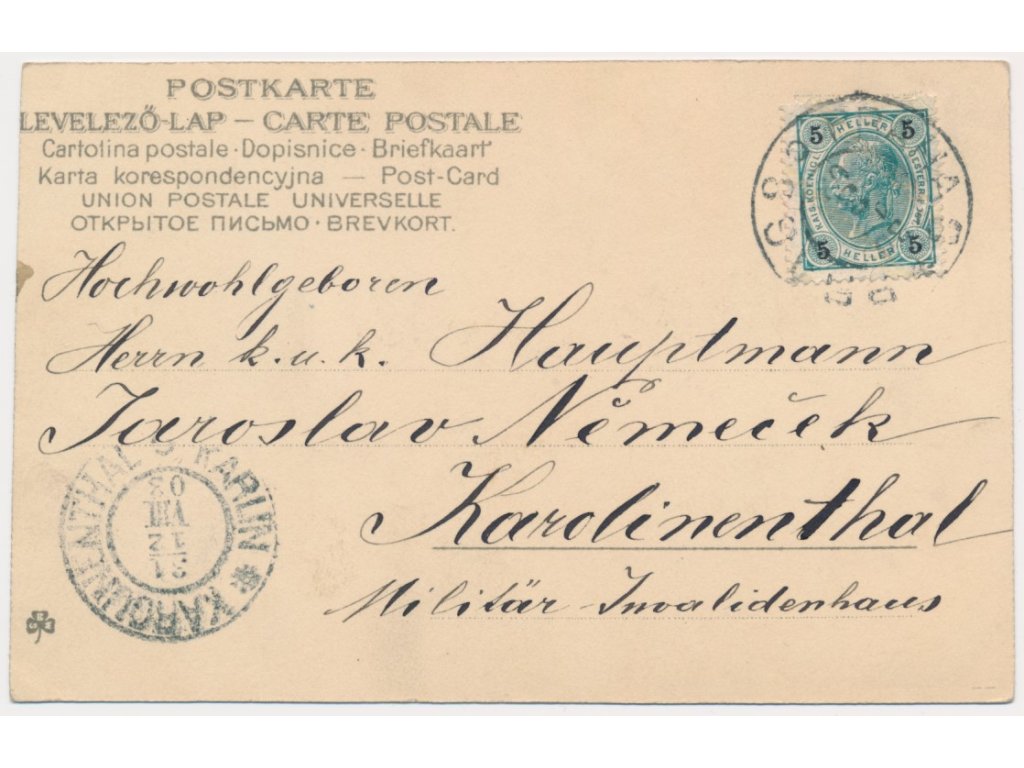 POSTKARTE
LEVELEZŐ-LAP – CARTE POSTALE
Cartolina postale · Dopisnice · Briefkaart
Karta korespondencyjna — Post-Card
UNION POSTALE UNIVERSELLE
ОТКРЫТОЕ ПИСЬМО · BREVKORT.
5 HELLER 5
KAIS. KOENIGL. OESTERR. POST
5 HELLER 5
Hochwohlgeboren
Herrn k. u. k. Hauptmann
Jaroslav Němeček
Karolinenthal
Militär-Invalidenhaus
KAROLINENTHAL KARLIN
03
VIII
12